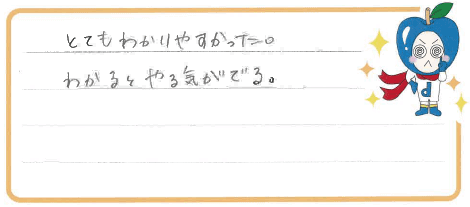 とてもわかりやすかった。
わかるとやる気がでる。
d